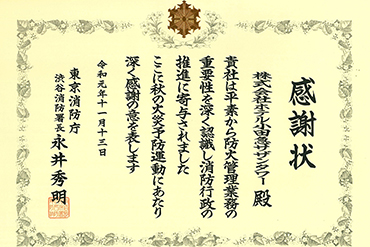 感謝状
株式会社ホテル小田急サザンタワー 殿
貴社は平素から防火管理業務の
重要性を深く認識し消防行政の
推進に寄与されました
ここに秋の火災予防運動にあたり
深く感謝の意を表します
令和元年十一月十三日
東京消防庁
渋谷消防署長 永井秀明